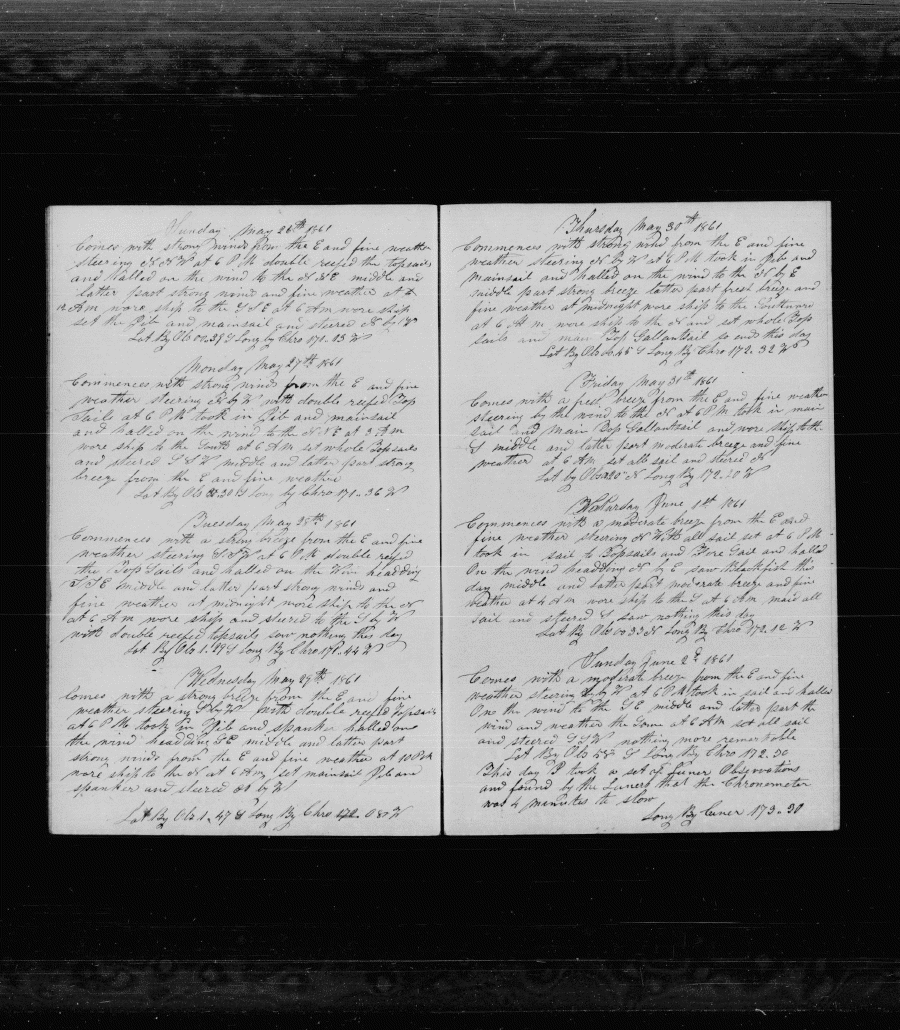 Sunday May 26th 1861
Comes with strong winds from the E and fine weather
steering N N W at 6 P.M double reefed the topsails
and halled on the wind to the N N E middle and
latter part strong wind and fine weather at
12 A m wore ship to the S S E at 6 A m wore ship
set the Jib and mainsail and steered N by W
Lat By Obs 00.39 S Long by Chro 171.23 W
Monday May 27th 1861
Commences with strong winds from the E and fine
weather steering N by W with double reefed Top
Sails at 6 P.M took in Jib and mainsail
and halled on the wind to the N N E at 3 A m
wore ship to the South at 6 A.M set whole Topsails
and steered S S W middle and latter part strong
breeze from the E and fine weather
Lat By Obs 00.30 S Long by Chro 171.36 W
Tuesday May 28th 1861
Commences with a strong breeze from the E and fine
weather steering S S W at 6 P.M double reefed
the Top Sails and halled on the Win headding
S S E middle and latter part strong winds and
fine weather at midnight wore ship to the N
at 6 A m wore ship and steered to the S by W
with double reefed topsails saw nothing this day
Lat By Obs 1.29 S Long By Chro 171.44 W
Wednesday May 29th 1861
Comes with a strong breeze from the E and fine
weather steering S by W with double reefed Topsails
at 6 P.M took in Jib and spanker halled on
the wind headding S E middle and latter part
strong winds from the E and fine weather at 10 P.M
wore ship to the N at 6 A m set mainsail Jib and
spanker and steered by W
Lat By Obs 1.47 S Long By Chro 172.08 W
Thursday May 30th 1861
Commences with strong wind from the E and fine
weather steering N by W at 6 P.M took in Jib and
Mainsail and halled on the wind to the N by E
middle part strong breeze latter part fresh breeze and
fine weather at midnight wore ship to the Southward
at 6 A m wore ship to the N and set whole Top
sails and main Top Gallantsail so ends this day
Lat By Obs 00.45 S Long By Chro 172.32 W
Friday May 31st 1861
Comes with a fresh breeze from the E and fine weather
steering by the wind to the N at 6 P.M took in main
sail and Main Top Gallantsail and wore ship to the
S middle and latter part moderate breeze and fine
weather at 6 A.M set all sail and steered N
Lat by Obs N Long By 172.20 W
Saturday June 1st 1861
Commences with a moderate breeze from the E and
fine weather steering N With all sail set at 6 P.M
took in sail to Topsails and Fore Sail and halled
On the wind headding N by E saw Blackfish this
day middle and latter part moderate breeze and fine
weather at 4 A m wore ship to the S at 6 A.m maid all
sail and steered S saw nothing this day
Lat By Obs 00.33 N Long By Chro 172.12 W
Sunday June 2d 1861
Comes with a moderate breeze from the E and fine
weather steering by W at 6 P.M took in sail and halled
On the wind to the S E middle and latter part the
wind and weather the same at 6 A.M set all sail
and steered S S W nothing more remarkable
Lat By Obs 58 S Long By Chro 172.50
This day I took a set of Luner Observations
and found by the Luners that the Chronometer
was 4 minutes to slow
Long By Luner 173.30